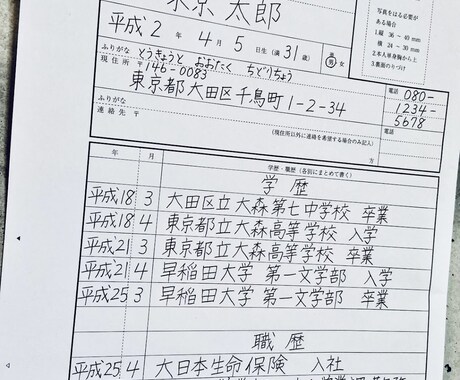 東京 太郎
平成2年 4月 5日生 (満31歳) 男 女
写真をはる必要が
ある場合
1.縦 36〜40mm
横 24〜30mm
2.本人単身胸から上
3.裏面のりづけ
ふりがな とうきょうと おおたく ちどりちょう
現住所 〒146-0083
東京都大田区千鳥町1-2-34
電話 080-
1234-
5678
ふりがな
連絡先 〒
(現住所以外に連絡を希望する場合のみ記入)
方
電話
年 月 学歴・職歴(各別にまとめて書く)
学 歴
平成18 3 大田区立大森第七中学校 卒業
平成18 4 東京都立大森高等学校 入学
平成21 3 東京都立大森高等学校 卒業
平成21 4 早稲田大学 第一文学部 入学
平成25 3 早稲田大学 第一文学部 卒業
職 歴
平成25 4 大日本生命保険 入社